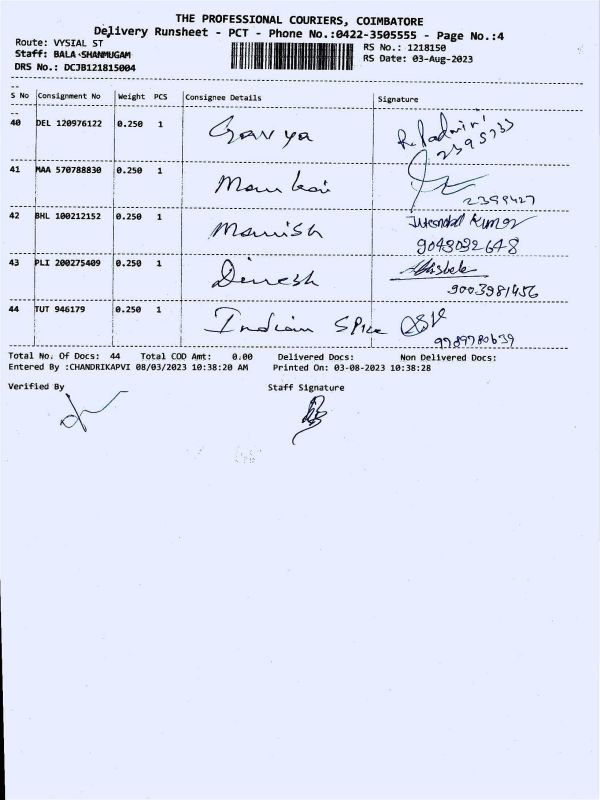 THE PROFESSIONAL COURIERS, COIMBATORE
Delivery Runsheet - PCT - Phone No.:0422-3505555 - Page No.:4
Route: VYSIAL ST
RS No.: 1218150
Staff: BALA SHANMUGAM
RS Date: 03-Aug-2023
DRS No.: DCJB121815004
S No Consignment No Weight PCS Consignee Details Signature
40 DEL 120976122 0.250 1 R. Padmini
2395733
41 MAA 570788830 0.250 1
2399427
42 BHL 100212152 0.250 1 Manish Kumar
9043092648
43 PLI 200275409 0.250 1 Dinesh
9003981456
44 TUT 946179 0.250 1 Indian Spice
9789780639
Total No. Of Docs: 44 Total COD Amt: 0.00 Delivered Docs: Non Delivered Docs:
Entered By :CHANDRIKAPVI 08/03/2023 10:38:20 AM Printed On: 03-08-2023 10:38:28
Verified By Staff Signature